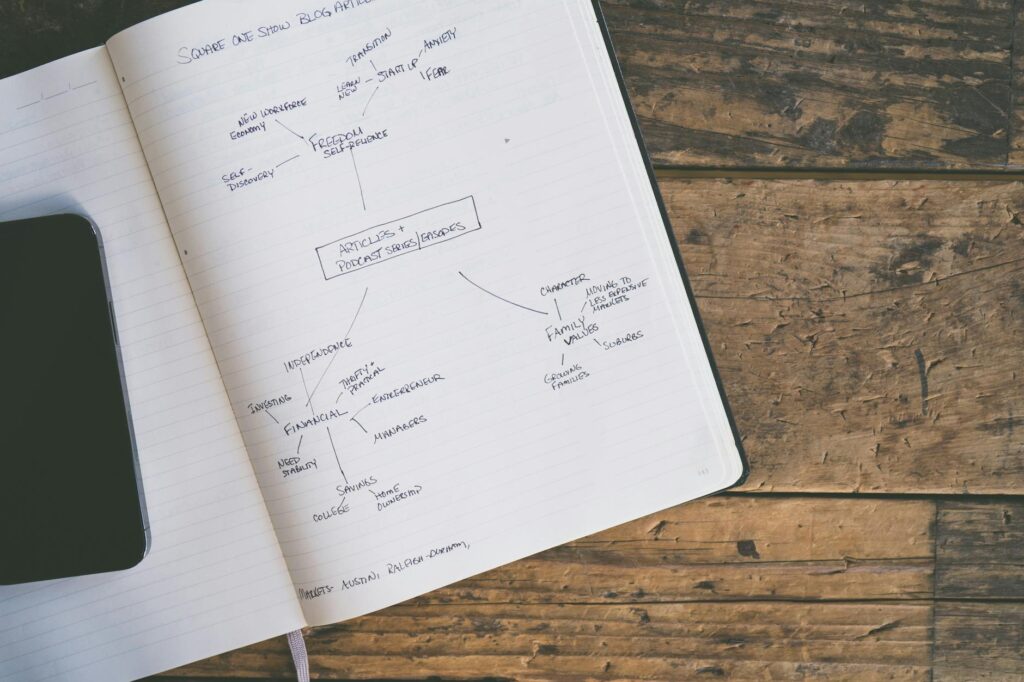 SQUARE ONE SHOW BLOG ARTICLE
TRANSITION
ANXIETY
LEARN
NEW
START UP
FEAR
NEW WORKFORCE
ECONOMY
FREEDOM
SELF-RELIENCE
SELF-
DISCOVERY
ARTICLES +
PODCAST SERIES/EPISODES
CHARACTER
MOVING TO
LESS EXPENSIVE
MARKETS
FAMILY
VALUES
SUBURBS
GROWING
FAMILIES
INDEPENDENCE
THRIFTY +
PRATICAL
INVESTING
ENTREPRENEUR
FINANCIAL
MANAGERS
NEED
STABILITY
SAVINGS
HOME
OWNERSHIP
COLLEGE
MARKETS- AUSTIN, RALEIGH-DURHAM,